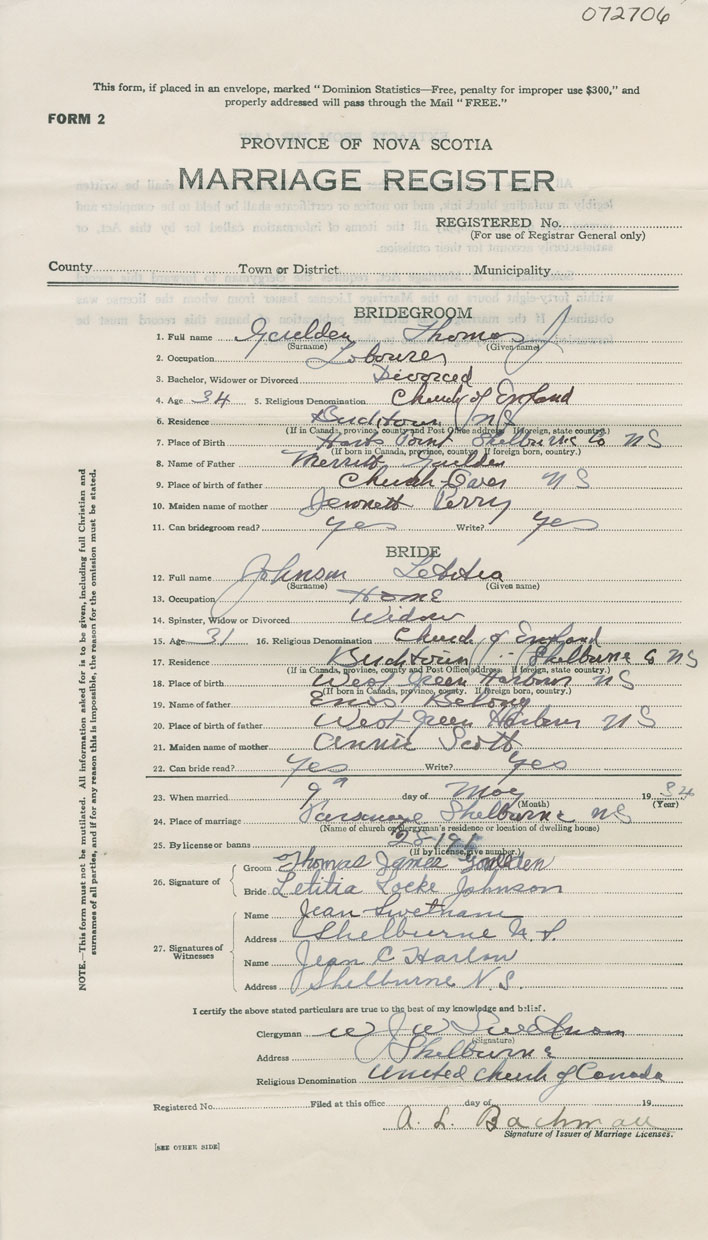 072706
This form, if placed in an envelope, marked "Dominion Statistics—Free, penalty for improper use $300," and
properly addressed will pass through the Mail "FREE."
FORM 2
PROVINCE OF NOVA SCOTIA
MARRIAGE REGISTER
REGISTERED No.
(For use of Registrar General only)
County Town or District Municipality
BRIDEGROOM
1. Full name Goulden Thomas J
(Surname) (Given name)
2. Occupation Labourer
3. Bachelor, Widower or Divorced Divorced
4. Age 34 5. Religious Denomination Church of England
6. Residence NS
(If in Canada, province, county and Post Office address. If foreign, state country.)
7. Place of Birth Harts Point Shelburne Co NS
(If born in Canada, province, county. If foreign born, country.)
8. Name of Father Merritt Goulden
9. Place of birth of father Church Over NS
10. Maiden name of mother Perry
11. Can bridegroom read? yes Write? yes
BRIDE
12. Full name Johnson Letitia
(Surname) (Given name)
13. Occupation Home
14. Spinster, Widow or Divorced Widow
15. Age 31 16. Religious Denomination Church of England
17. Residence Shelburne Co NS
(If in Canada, province, county and Post Office address. If foreign, state country.)
18. Place of birth West Green Harbour NS
(If born in Canada, province, county. If foreign born, country.)
19. Name of father Enos
20. Place of birth of father West Green Harbour NS
21. Maiden name of mother Annie Scott
22. Can bride read? Yes Write? yes
23. When married 9 day of May 1934
(Month) (Year)
24. Place of marriage Parsonage Shelburne NS
(Name of church or clergyman's residence or location of dwelling house)
25. By license or banns
(If by license, give number.)
26. Signature of
Groom Thomas James Goulden
Bride Letitia Locke Johnson
27. Signatures of Witnesses
Name Jean Swetnam
Address Shelburne N.S.
Name Jean C Harlow
Address Shelburne N.S.
I certify the above stated particulars are true to the best of my knowledge and belief.
Clergyman W J W Swetnam
(Signature)
Address Shelburne
Religious Denomination United Church of Canada
Registered No. Filed at this office day of 19
A. L. Bachman
Signature of Issuer of Marriage Licenses.
[SEE OTHER SIDE]
NOTE.—This form must not be mutilated. All information asked for is to be given, including full Christian and
surnames of all parties, and if for any reason this is impossible, the reason for the omission must be stated.